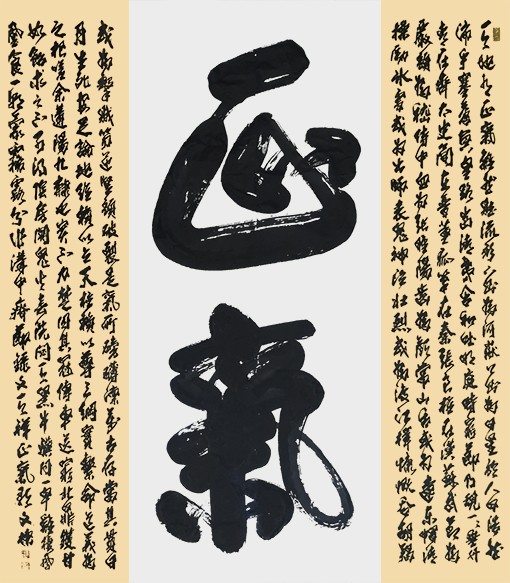 正氣
天地有正氣雜然賦流形下則為河嶽上則為日星於人曰浩然
沛乎塞蒼冥皇路當清夷含和吐明庭時窮節乃現一一垂丹
青在齊太史簡在晉董狐筆在秦張良椎在漢蘇武節為
嚴將軍頭為嵇侍中血為張睢陽齒為顏常山舌或為遼東帽清
操厲冰雪或為出師表鬼神泣壯烈或為渡江楫慷慨吞胡羯
或為擊賊笏逆豎頭破裂是氣所磅礴凜烈萬古存當其貫日
月生死安足論地維賴以立天柱賴以尊三綱實繫命道義為
之根嗟余遘陽九隸也實不力楚囚其冠傳車送窮北鼎鑊甘
如飴求之不可得陰房闃鬼火春院閟天黑牛驥同一皁雞棲鳳
凰食一朝蒙霧露分作溝中瘠錄文天祥正氣歌文